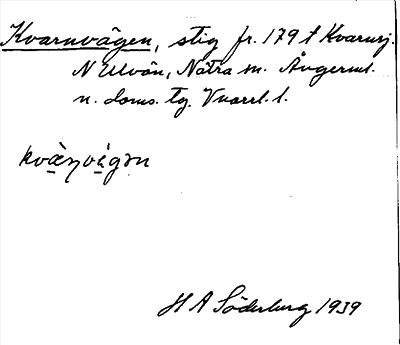 Kvarnvägen, stig fr. 179 t Kvarnsj.
N Ulvön, Nätra sn. Ångerml.
n. doms. tg. Vnorrl. l.
kvæ̀ɳvę́gən
H A Söderburg 1939